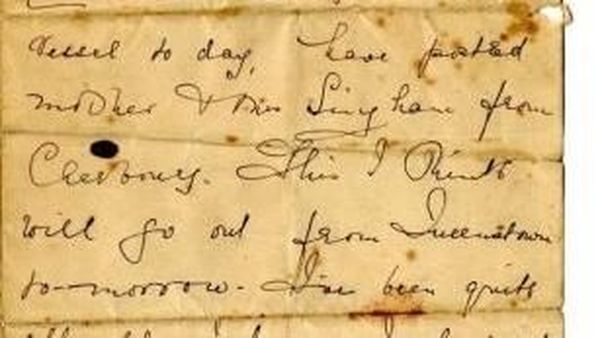 vessel to day, have posted
mother & Miss Lingham from
Cherbourg. This I think
will go out from Queenstown
to-morrow. I've been quite